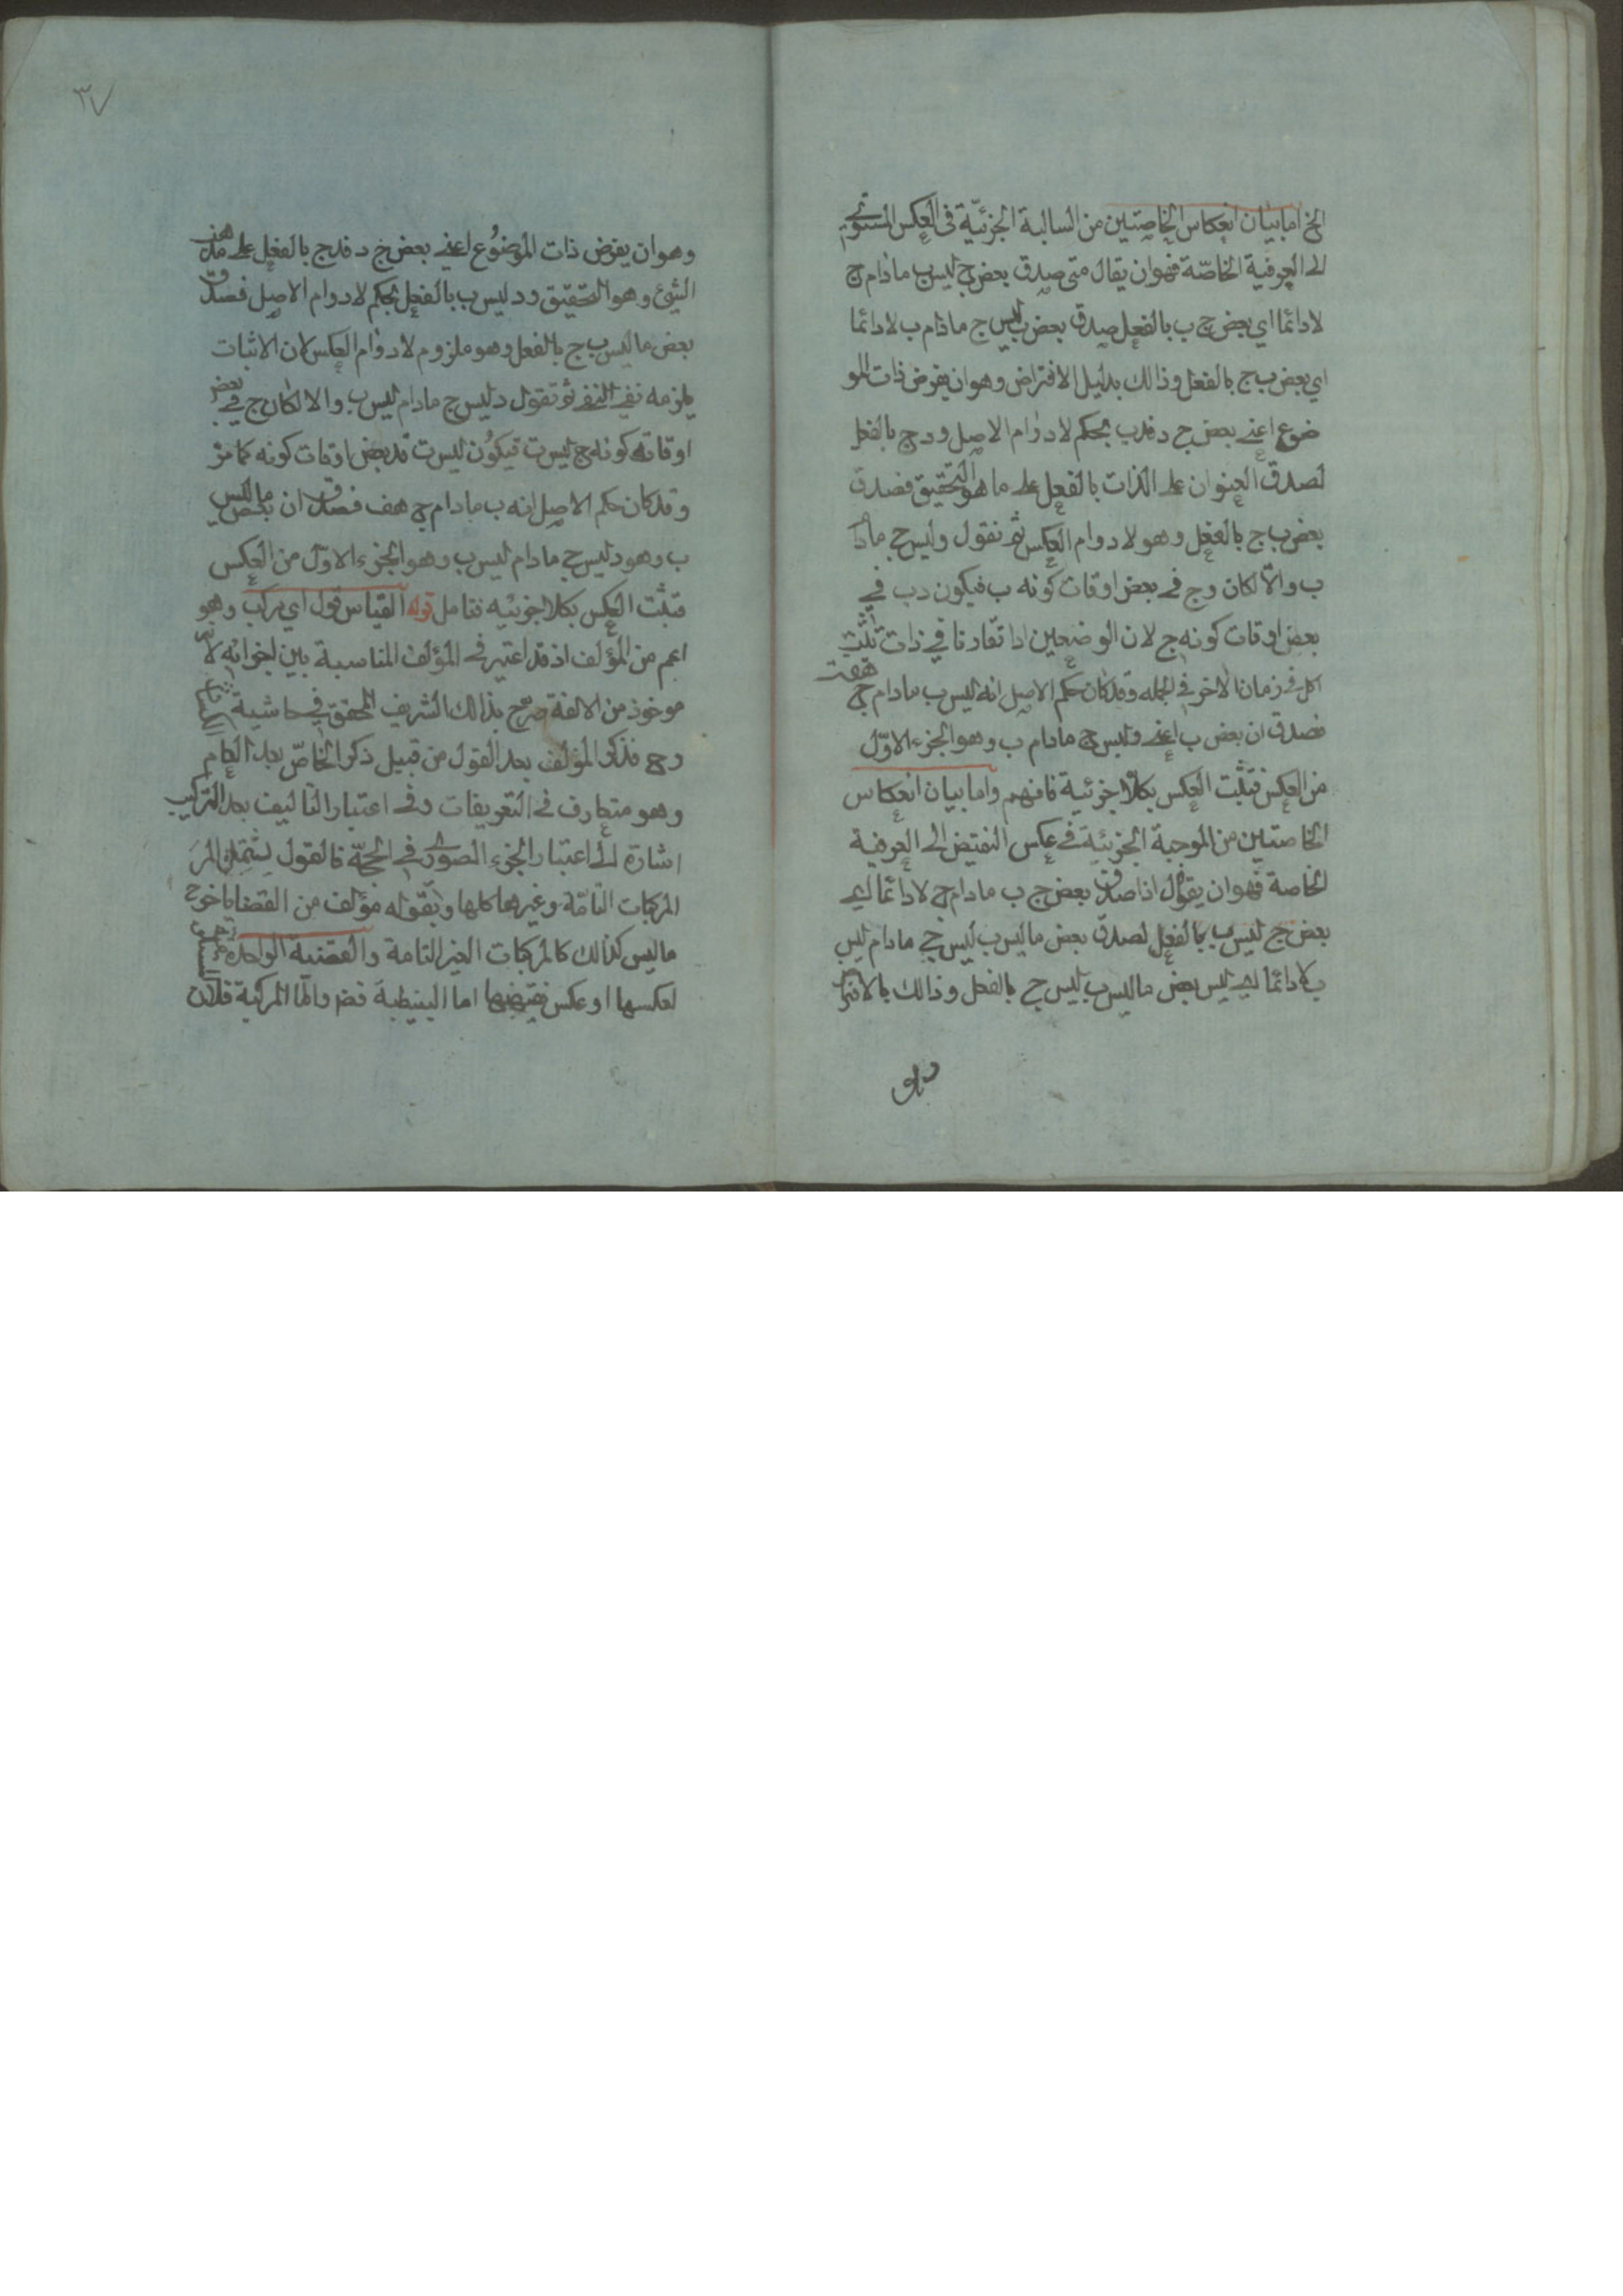 الخ اما بيان انعكاس الخاصتين من السالبة الجزئيّة في العكس المستوي
الى العرفية الخاصّة فهو ان يقال متى صدق بعض ج ليس ب مادام ج
لا دائما اي بعض ج ب بالفعل صدق بعض ب ليس ج مادام ب لا دائما
اي بعض ب ج بالفعل وذالك بدليل الافتراض وهو ان يفرض ذات المو
ضوع اعني بعض ج د فدب بحكم لا دوام الاصل ودج بالفعل
لصدق العنوان على الذات بالفعل على ما هو التحقيق فصدق
بعض ب ج بالفعل وهو لا دوام العكس ثم نقول وليس ج مادا
ب والّا لكان دج في بعض اوقات كونه ب فيكون دب في
بعض اوقات كونه ج لان الوضعين اذا تقارنا في ذات تثبت
كل في زمان الاخر في الجمله وقد كان حكم الاصل انه ليس ب مادام ج هف
فصدق ان بعض ب اعني وليس ج مادام ب وهو الجزء الاوّل
من العكس فتثبت العكس بكلا جزئية فافهم واما بيان انعكاس
الخاصتين من الموجبة الجزئية في عكس النقيض الى العرفية
الخاصة فهو ان يقال اذا صدق بعض ج ب مادام ج لا دائما اي
بعض ج ليس ب بالفعل لصدق بعض ما ليس ب ليس ج مادام ليس
ب لا دائما اي ليس بعض ما ليس ب ليس ج بالفعل وذالك بالافترا
٣٧
وهو ان يفرض ذات الموضوع اعني بعض ج د فدج بالفعل على مذهب
الشيخ وهو التحقيق ود ليس ب بالفعل بحكم لا دوام الاصل فصدق
بعض ما ليس ب ج بالفعل وهو ملزوم لا دوام العكس لان الاثبات
يلزمه نفي النفي ثم تقول د ليس ج مادام ليس ب والا لكان ج في بعض
اوقات كونه ليس ب فيكون ليس ب في بعض اوقات كونه كما مر
وقد كان حكم الاصل انه ب مادام ج هف فصدق ان بعض ما ليس
ب وهو د ليس ج مادام ليس ب وهو الجزء الاوّل من العكس
فتثبت العكس بكلا جزئيه فتامل قوله القياس قول اي مركب وهو
اعم من المؤلف اذ قد اعتبر في المؤلف المناسبة بين اجزائه لانّه
موخوذ من الالفة صرّح بذالك الشريف المحقق في حاشية
وح فذكر المؤلف بعد القول من قبيل ذكر الخاصّ بعد العام
وهو متعارف في التعريفات وفي اعتبار التاليف بعد التركيب
اشارة الى اعتبار الجزء الصوري في الحجّة فالقول يشتمل المر
المركبات التامّة وغيرها كلها وبقوله مؤلف من القضايا خرج
ما ليس كذالك كالمركبات الغير التامة والقضية الواحدة
لعكسها او عكس نقيضها اما البسيطة فظ وامّا المركبة فلان